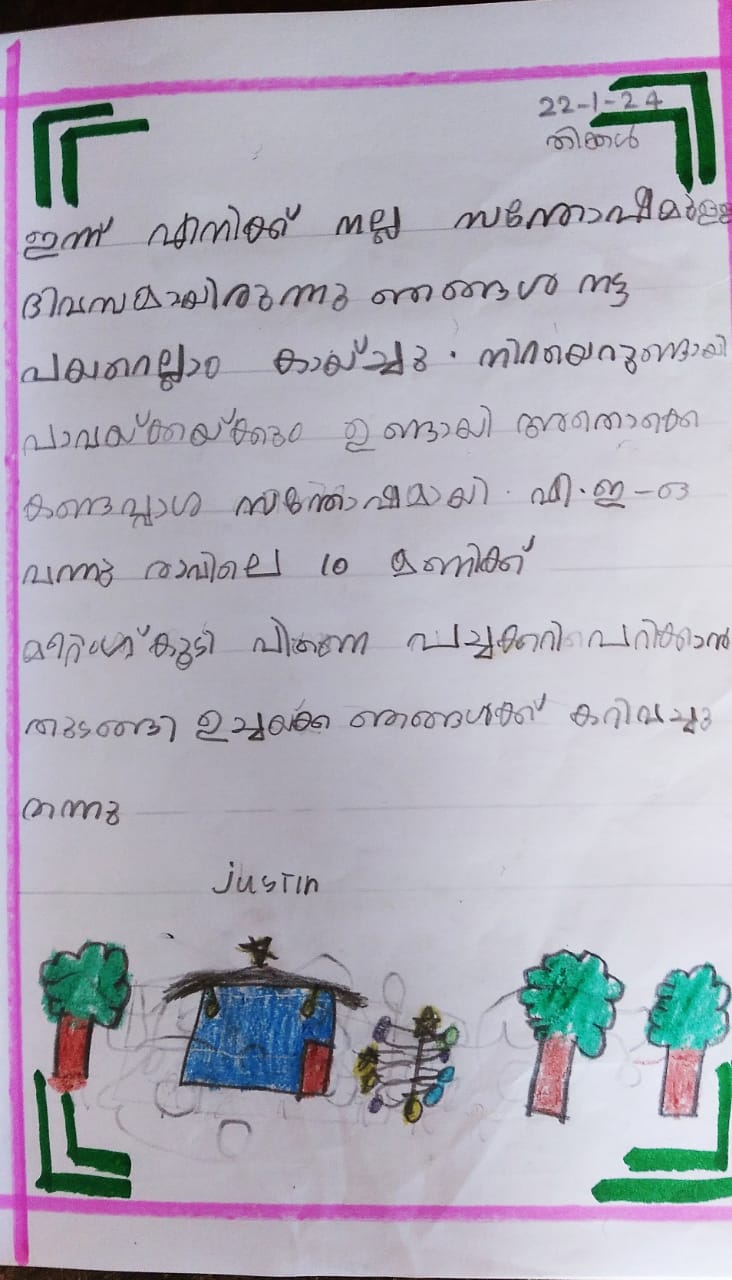 22-1-24
തിങ്കൾ
ഇന്ന് എനിക്ക് നല്ല സന്തോഷമുളള
ദിവസമായിരുന്നു ഞങ്ങള നട്ട
പയറെല്ലാം കായ്ച്ചു . നിറയെറുണ്ടായി
പാവയ്ക്കയ്ക്കും ഉണ്ടായി അതൊക്കെ
കണ്ടപ്പോള സന്തോഷമായി . വി.ഇ-ഒ
വന്നു രാവിലെ 10 മണിക്ക്
മീറ്റിംഗ് കൂടി പിന്നെ പച്ചക്കറി പറിക്കാൻ
തുടങ്ങി ഉച്ചക്ക ഞങ്ങൾക്ക് കറിവച്ചു
തന്നു
Justin